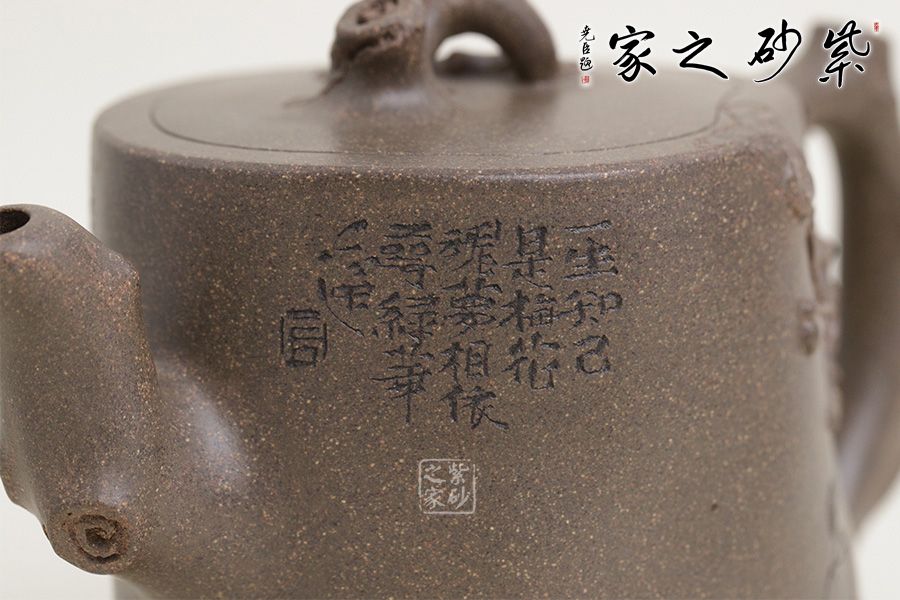 紫砂之家
尧臣题
一生知己
是梅花
魂夢相依
尋綠華
紫砂之家